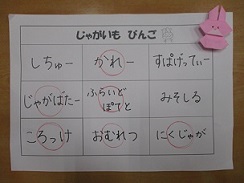 じゃがいも びんご
しちゅー
かれー
すぱげってぃー
じゃがばたー
ふらいど
ぽてと
みそしる
ころっけ
おむれつ
にくじゃが